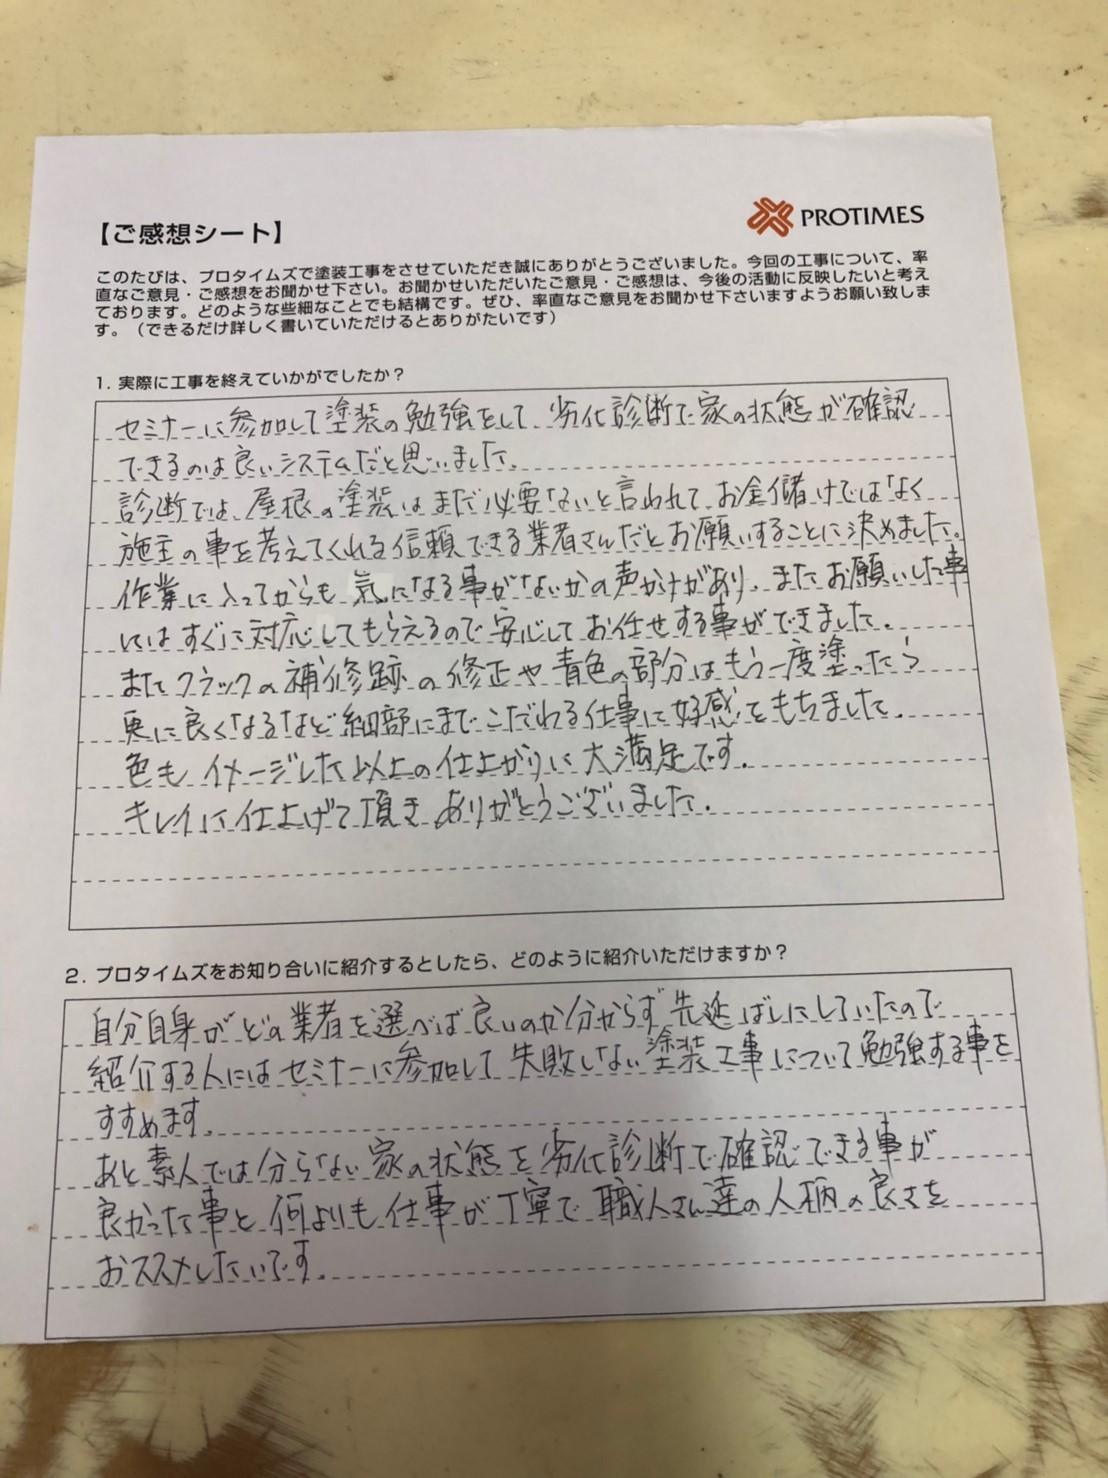 【ご感想シート】
PROTIMES
このたびは、プロタイムズで塗装工事をさせていただき誠にありがとうございました。今回の工事について、率
直なご意見・ご感想をお聞かせ下さい。お聞かせいただいたご意見・ご感想は、今後の活動に反映したいと考え
ております。どのような些細なことでも結構です。ぜひ、率直なご意見をお聞かせ下さいますようお願い致しま
す。（できるだけ詳しく書いていただけるとありがたいです）
1. 実際に工事を終えていかがでしたか？
セミナーに参加して塗装の勉強をして、劣化診断で家の状態が確認
できるのは良いシステムだと思いました。
診断では、屋根の塗装はまだ必要ないと言われて、お金儲けではなく
施主の事を考えてくれる信頼できる業者さんだとお願いすることに決めました。
作業に入ってからも気になる事がないかの声かけがあり、またお願いした事
にはすぐに対応してもらえるので安心してお任せする事ができました。
またクラックの補修跡の修正や青色の部分はもう一度塗ったら
更に良くなるなど細部にまでこだわる仕事に好感をもちました。
色もイメージした以上の仕上がりに大満足です。
キレイに仕上げて頂きありがとうございました。
2. プロタイムズをお知り合いに紹介するとしたら、どのように紹介いただけますか？
自分自身がどの業者を選べば良いのか分からず先延ばしにしていたので
紹介する人にはセミナーに参加して失敗しない塗装工事について勉強する事を
すすめます。
あと素人では分らない家の状態を劣化診断で確認できる事が
良かった事と何よりも仕事が丁寧で職人さん達の人柄の良さを
おススメしたいです。